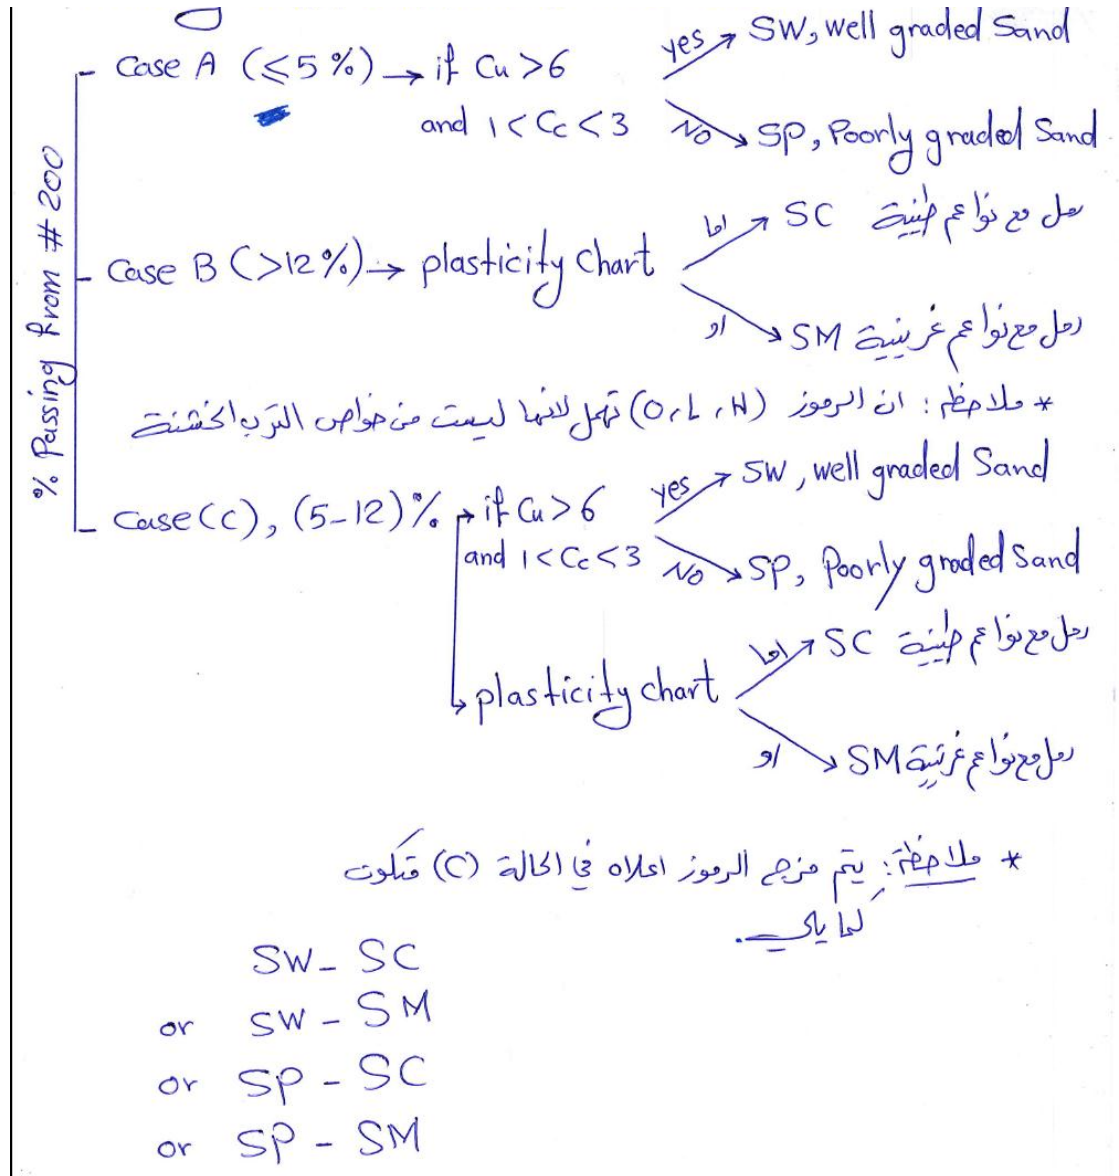 Case A (≤5%) → if Cu>6 yes → SW, well graded Sand
and 1<Cc<3 No → SP, Poorly graded Sand
% Passing from #200
Case B (>12%) → plasticity chart اما → SC رمل مع نواعم طينية
او → SM رمل مع نواعم غرينية
* ملاحظة: ان الرموز (O, L, H) تهمل لانها ليست من خواص الترب الخشنة
Case (C), (5-12)% → if Cu>6 yes → SW, well graded Sand
and 1<Cc<3 No → SP, Poorly graded Sand
→ plasticity chart اما → SC رمل مع نواعم طينية
او → SM رمل مع نواعم غرينية
* ملاحظة: يتم مزج الرموز اعلاه في الحالة (C) فتكون
كما يلي.
SW - SC
or SW - SM
or SP - SC
or SP - SM